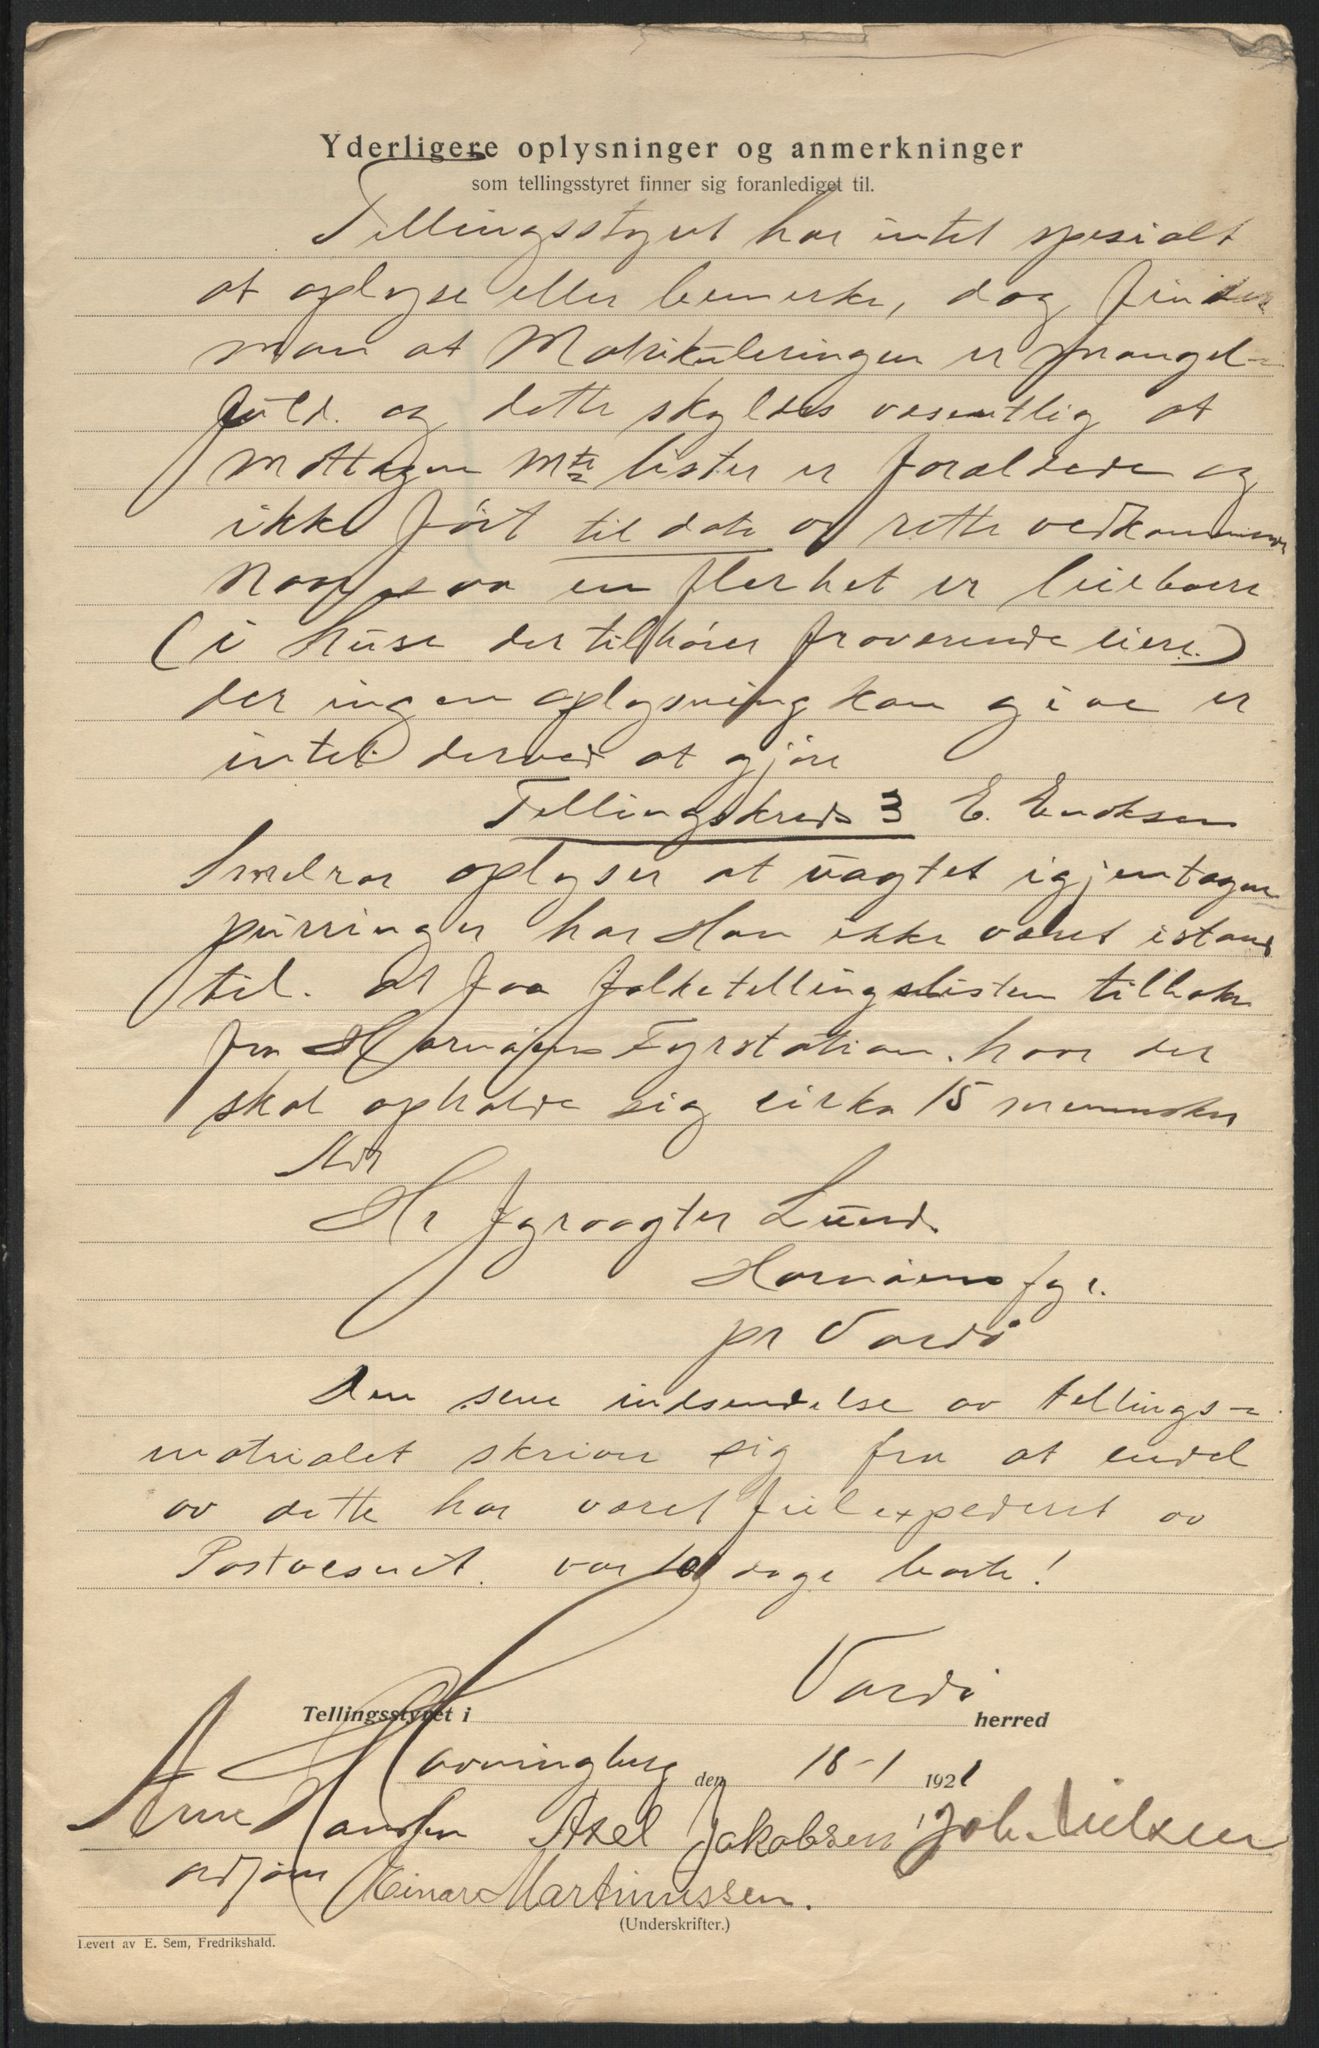 Yderligere oplysninger og anmerkninger
som tellingsstyret finner sig foranlediget til.
Tellingsstyret har intet spesialt
at oplyse eller bemerke, dog finder
man at Matrikuleringen er mangel-
fuld. og dette skyldes væsentlig at
mottagen Mtr lister er forældede og
ikke ført til dato av rette vedkommende
naar saa en flerhet er leieboere
(i huse der tilhører fraværende eiere.)
der ingen oplysning kan give er
intet derved at gjøre
Tellingskreds 3 E. Eriksen
Smelror oplyser at uagtet igjentagen
purringer har Han ikke været istand
til. at faa folketellingslisten tilbake
fra Hornøens Fyrstation. hvor der
skal opholde sig cirka 15 mennesker
Adr
Hr fyrvogter Lund.
Hornøens fyr.
pr Vardø
Den sene indsendelse av tellings-
matrialet skriver sig fra at endel
av dette har været feilexpederet av
Postvesenet. var dage borte!
Tellingsstyret i Vardø herred
Havningberg den 18-1 1921
Arne Hansen Axel Jakobsen Joh. Nielsen
ordfører Einar Martinussen.
(Underskrifter.)
Levert av E. Sem, Fredrikshald.